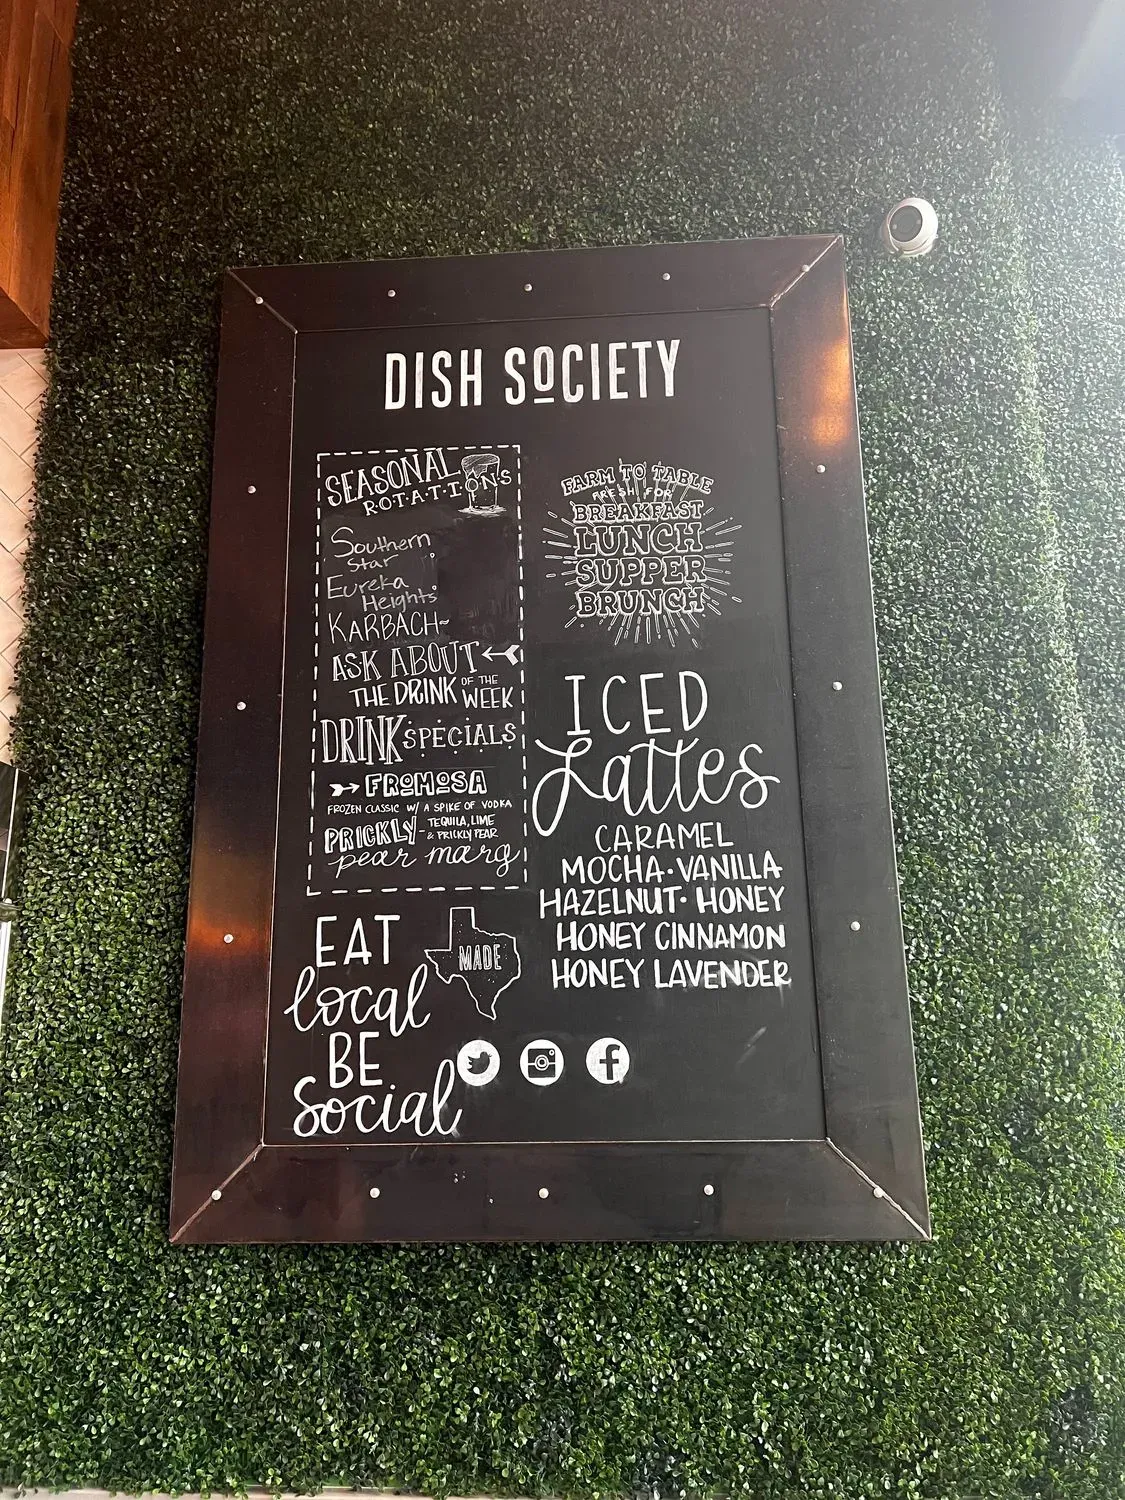 DISH SOCIETY
SEASONAL
R·O·T·A·T·I·O·N·S
Southern
Star
Eureka
Heights
KARBACH~
ASK ABOUT
THE DRINK OF THE WEEK
DRINK SPECIALS
FROMOSA
FROZEN CLASSIC W/ A SPIKE OF VODKA
PRICKLY - TEQUILA, LIME
& PRICKLY PEAR
pear marg
EAT
local
BE
Social
MADE
FARM TO TABLE
FRESH FOR
BREAKFAST
LUNCH
SUPPER
BRUNCH
ICED
Lattes
CARAMEL
MOCHA · VANILLA
HAZELNUT · HONEY
HONEY CINNAMON
HONEY LAVENDER
f